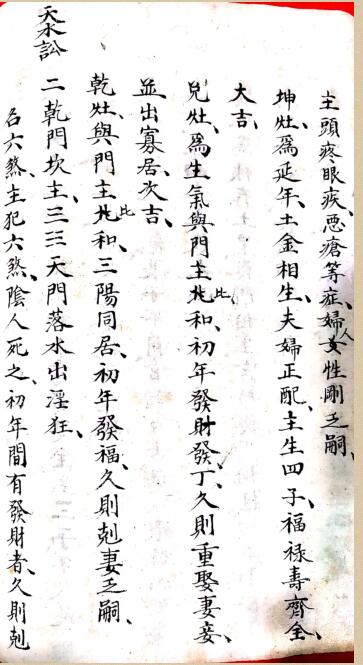 主頭疼眼疾、悪瘡等症、婦人女性剛乏嗣、
坤灶、為延年、土金相生、夫婦正配、主生四子、福禄壽齊全、
大吉、
兌灶、為生氣與門主比和、初年發財發丁、久則重娶妻妾、
並出寡居、次吉、
乾灶、與門主比和、三陽同居、初年發福、久則剋妻乏嗣、
天水訟
二乾門坎主、三三天門落水出淫狂、
名六煞、主犯六煞、陰人死之、初年間有發財者、久則剋